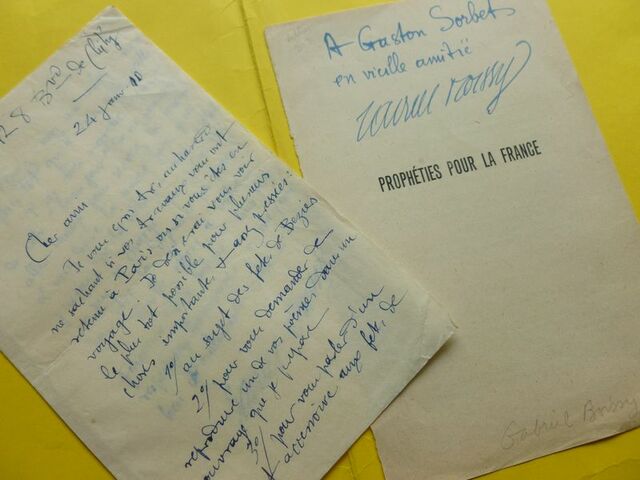 128 Bvd de Clichy
24 janv. 10
Cher ami
Je vous écris
ne sachant si vos travaux vous ont
retenu à Paris ou si vous êtes en
voyage. Je désirerai vous voir
le plus tôt possible pour plusieurs
choses importantes et assez pressées:
1o/ au sujet des fêtes de Béziers
2o/ pour vous demander de
reproduire un de vos poèmes dans un
ouvrage que je prépare
3o/ pour vous parler d'un
accessoire aux fêtes, de
A Gaston Sorbets
en vieille amitié
PROPHÉTIES POUR LA FRANCE
Gabriel Boissy